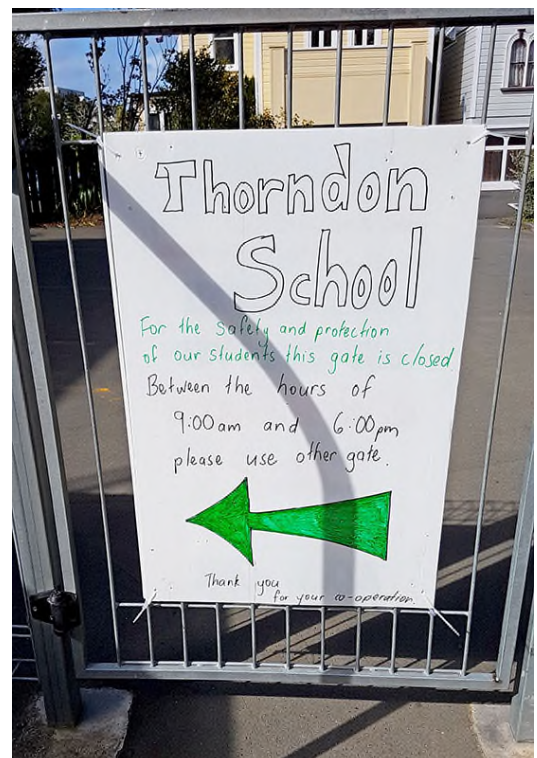 Thorndon
School
For the safety and protection
of our students this gate is closed.
Between the hours of
9:00am and 6:00pm
please use other gate.
Thank you
for your co-operation.